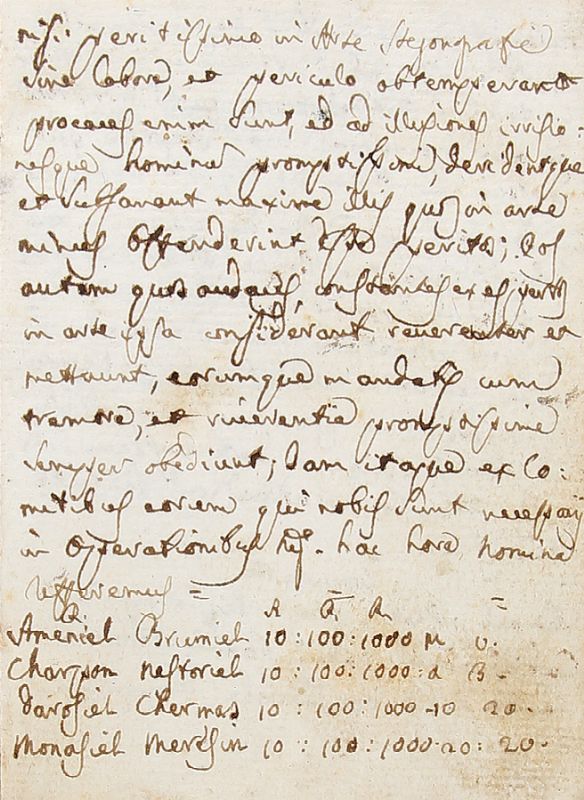 nisi peritissime in Arte Steganografie
sine labore, et periculo obtemperant
procaces enim sunt, ad illusiones irrisio:
nesque hominũ promptissimi, derident que
et maxime illis quos in arte
minus offenderint esse peritos; Eos
autem quos audaces, constantes
in arte ipsa considerant reverenter et
mettuunt, eorumque mandatis cum
tremore, et riverentia promptissime
semper obediunt; Iam itaque ex Co:
mitibus eorum qui nobis sunt
in operationibus hac hora nomina
=
Ameniel Brumiel 10 : 100 : 1000
Charpson nestoriel 10 : 100 : 1000
darosiel Chermas 10 : 100 : 1000 - 10 20 -
Monasiel meresin 10 : 100 : 1000 - 20 : 20 -